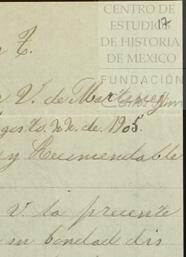 CENTRO DE
ESTUDIOS
DE HISTORIA
DE MEXICO
FUNDACIÓN
17
T.
V. de Martinez
Agosto 22 de 1905.
y Recomendable
V. la presente
su bondad dis